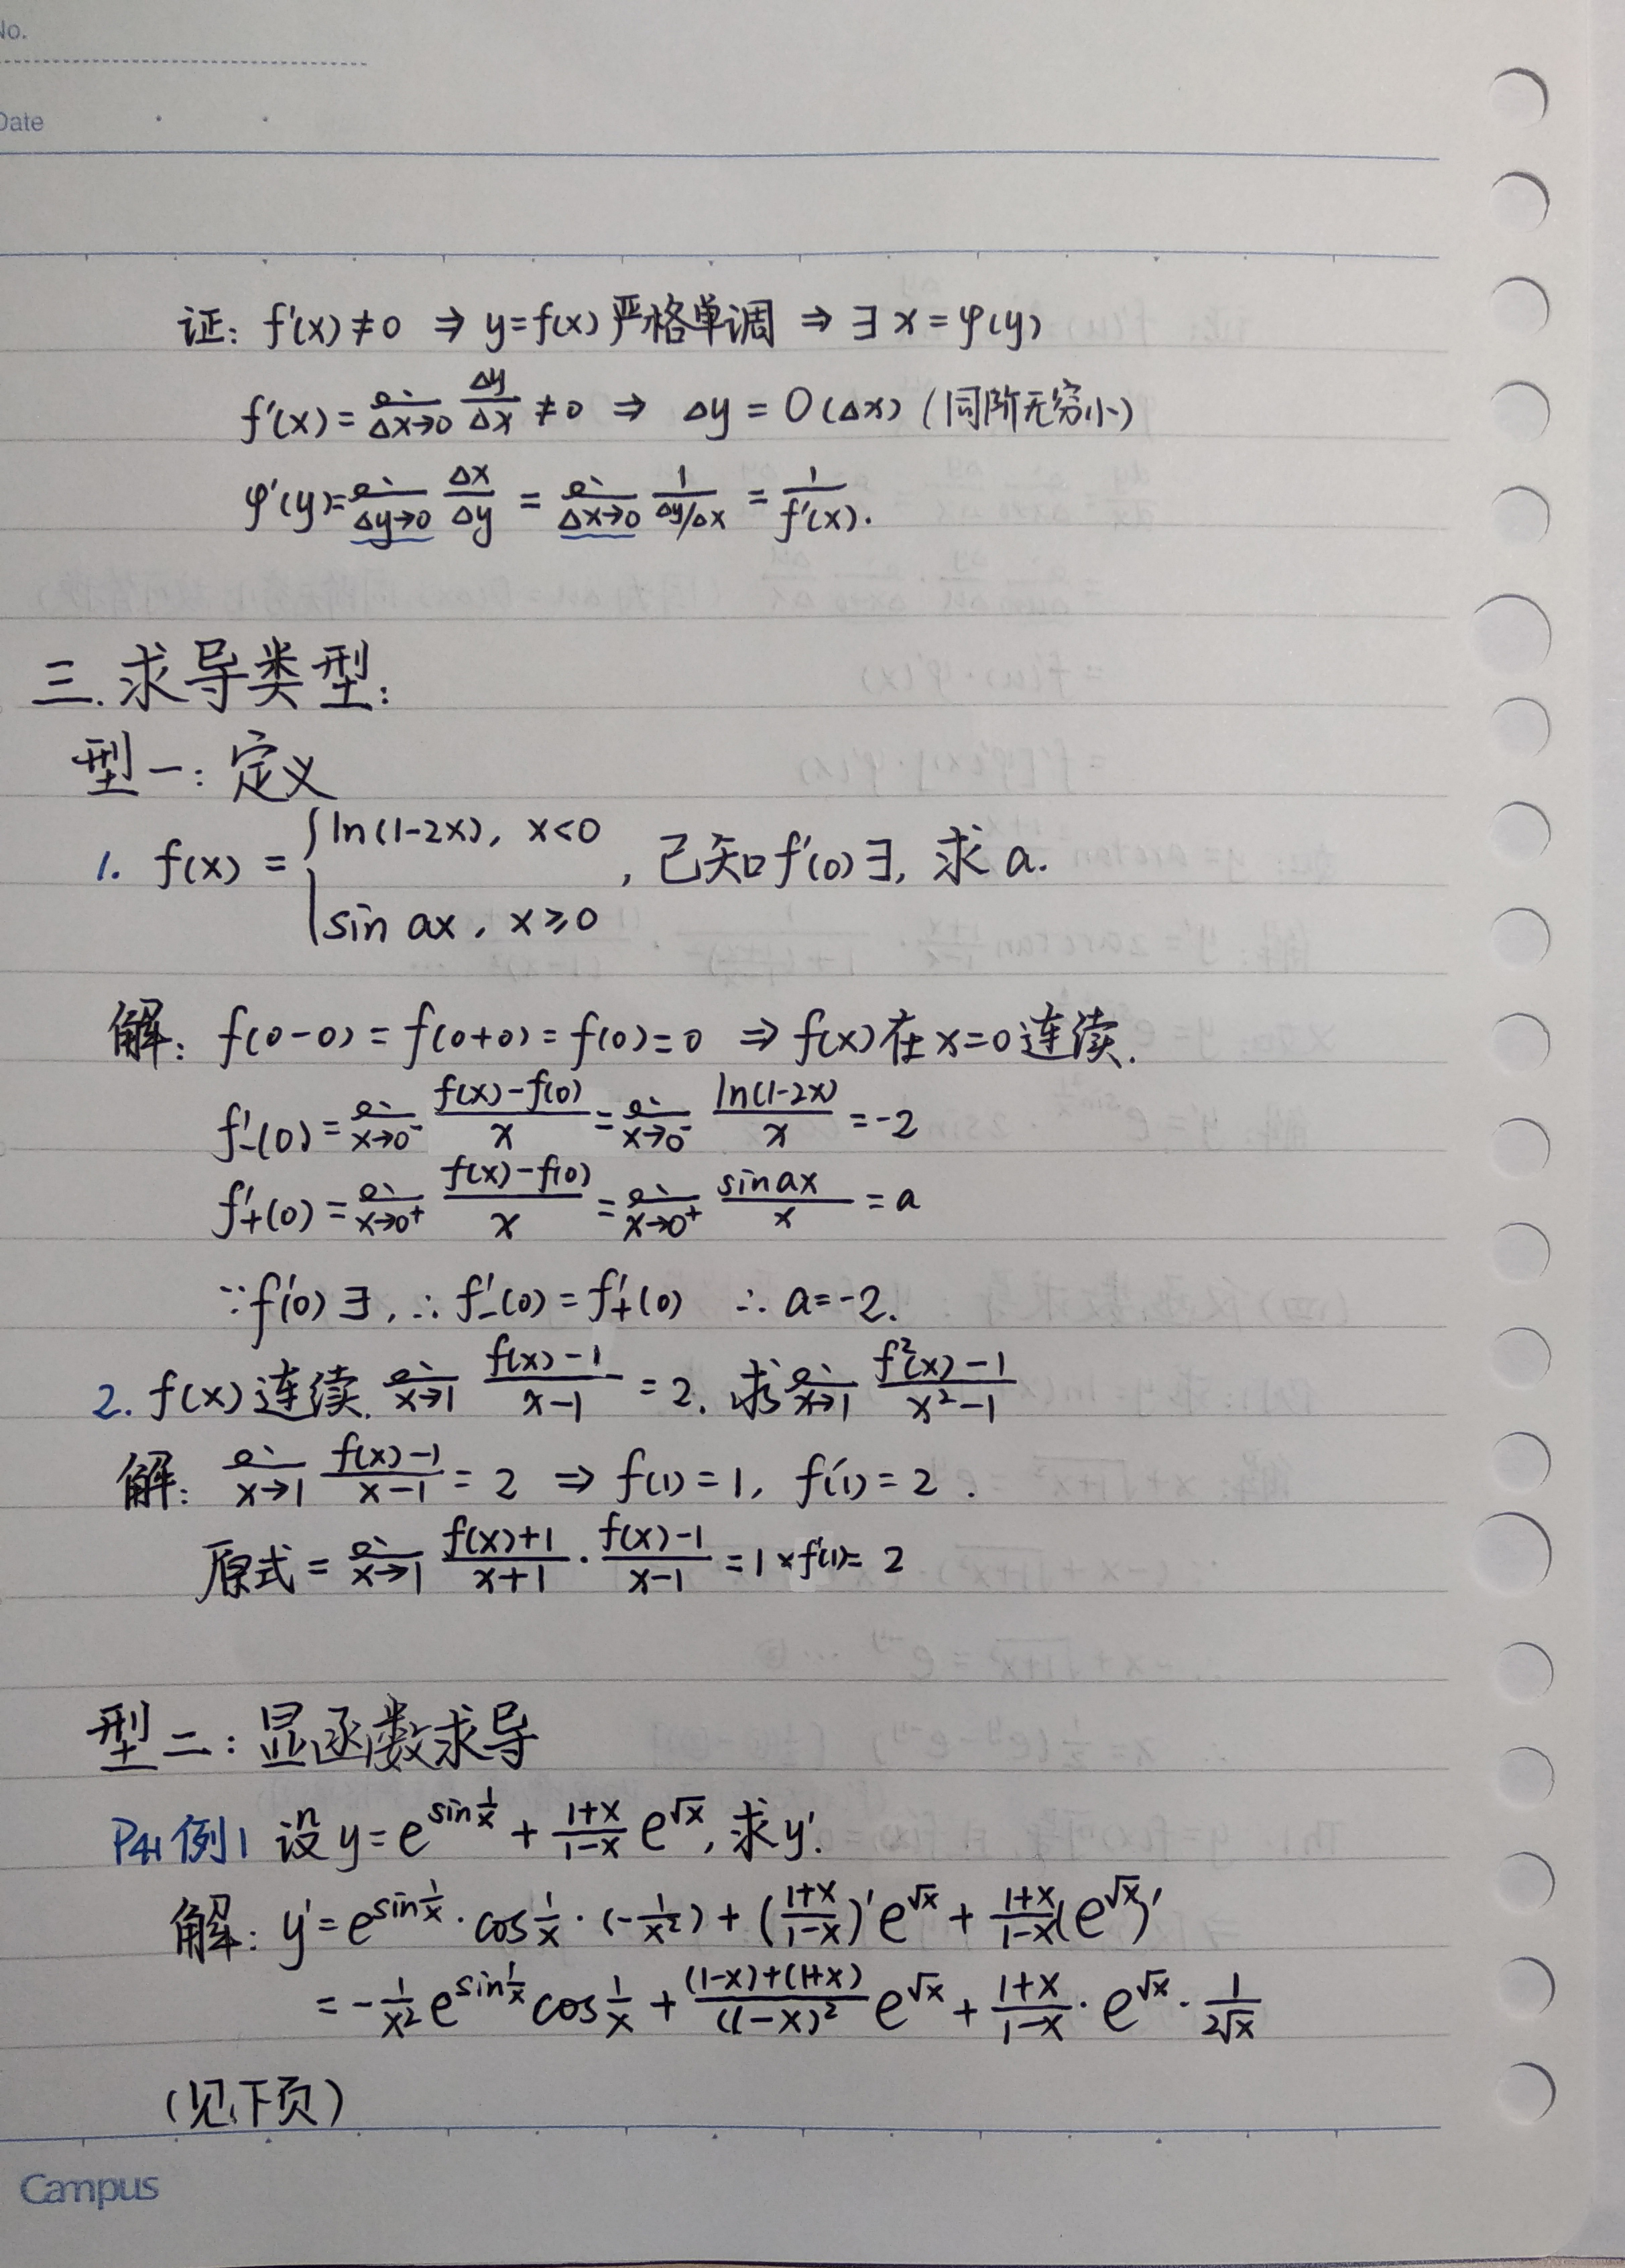 No.
Date
证: f'(x)≠0 ⇒ y=f(x)严格单调 ⇒ ∃ x=φ(y)
f'(x)=lim_{Δx→0} Δy/Δx ≠0 ⇒ Δy=O(Δx) (同阶无穷小)
φ'(y)=lim_{Δy→0} Δx/Δy = lim_{Δx→0} 1/(Δy/Δx) = 1/f'(x).
三.求导类型:
型一:定义
1. f(x)={ln(1-2x), x<0
sin ax, x≥0
, 已知f'(0)∃, 求a.
解: f(0-0)=f(0+0)=f(0)=0 ⇒ f(x)在x=0连续.
f'₋(0)=lim_{x→0⁻} (f(x)-f(0))/x = lim_{x→0⁻} ln(1-2x)/x =-2
f'₊(0)=lim_{x→0⁺} (f(x)-f(0))/x = lim_{x→0⁺} sin ax/x = a
∵f'(0)∃, ∴f'₋(0)=f'₊(0) ∴a=-2.
2. f(x)连续. lim_{x→1} (f(x)-1)/(x-1) =2. 求lim_{x→1} (f²(x)-1)/(x²-1)
解: lim_{x→1} (f(x)-1)/(x-1) =2 ⇒ f(1)=1, f'(1)=2.
原式=lim_{x→1} (f(x)+1)/(x+1)·(f(x)-1)/(x-1) =1×f'(1)=2
型二:显函数求导
P41例1 设y=e^{sin 1/x}+(1+x)/(1-x) e^{√x}, 求y'.
解: y'=e^{sin 1/x}·cos 1/x·(-1/x²)+((1+x)/(1-x))'e^{√x}+(1+x)/(1-x)(e^{√x})'
=-1/x² e^{sin 1/x} cos 1/x+((1-x)+(1+x))/(1-x)² e^{√x}+(1+x)/(1-x)·e^{√x}·1/(2√x)
(见下页)
Campus